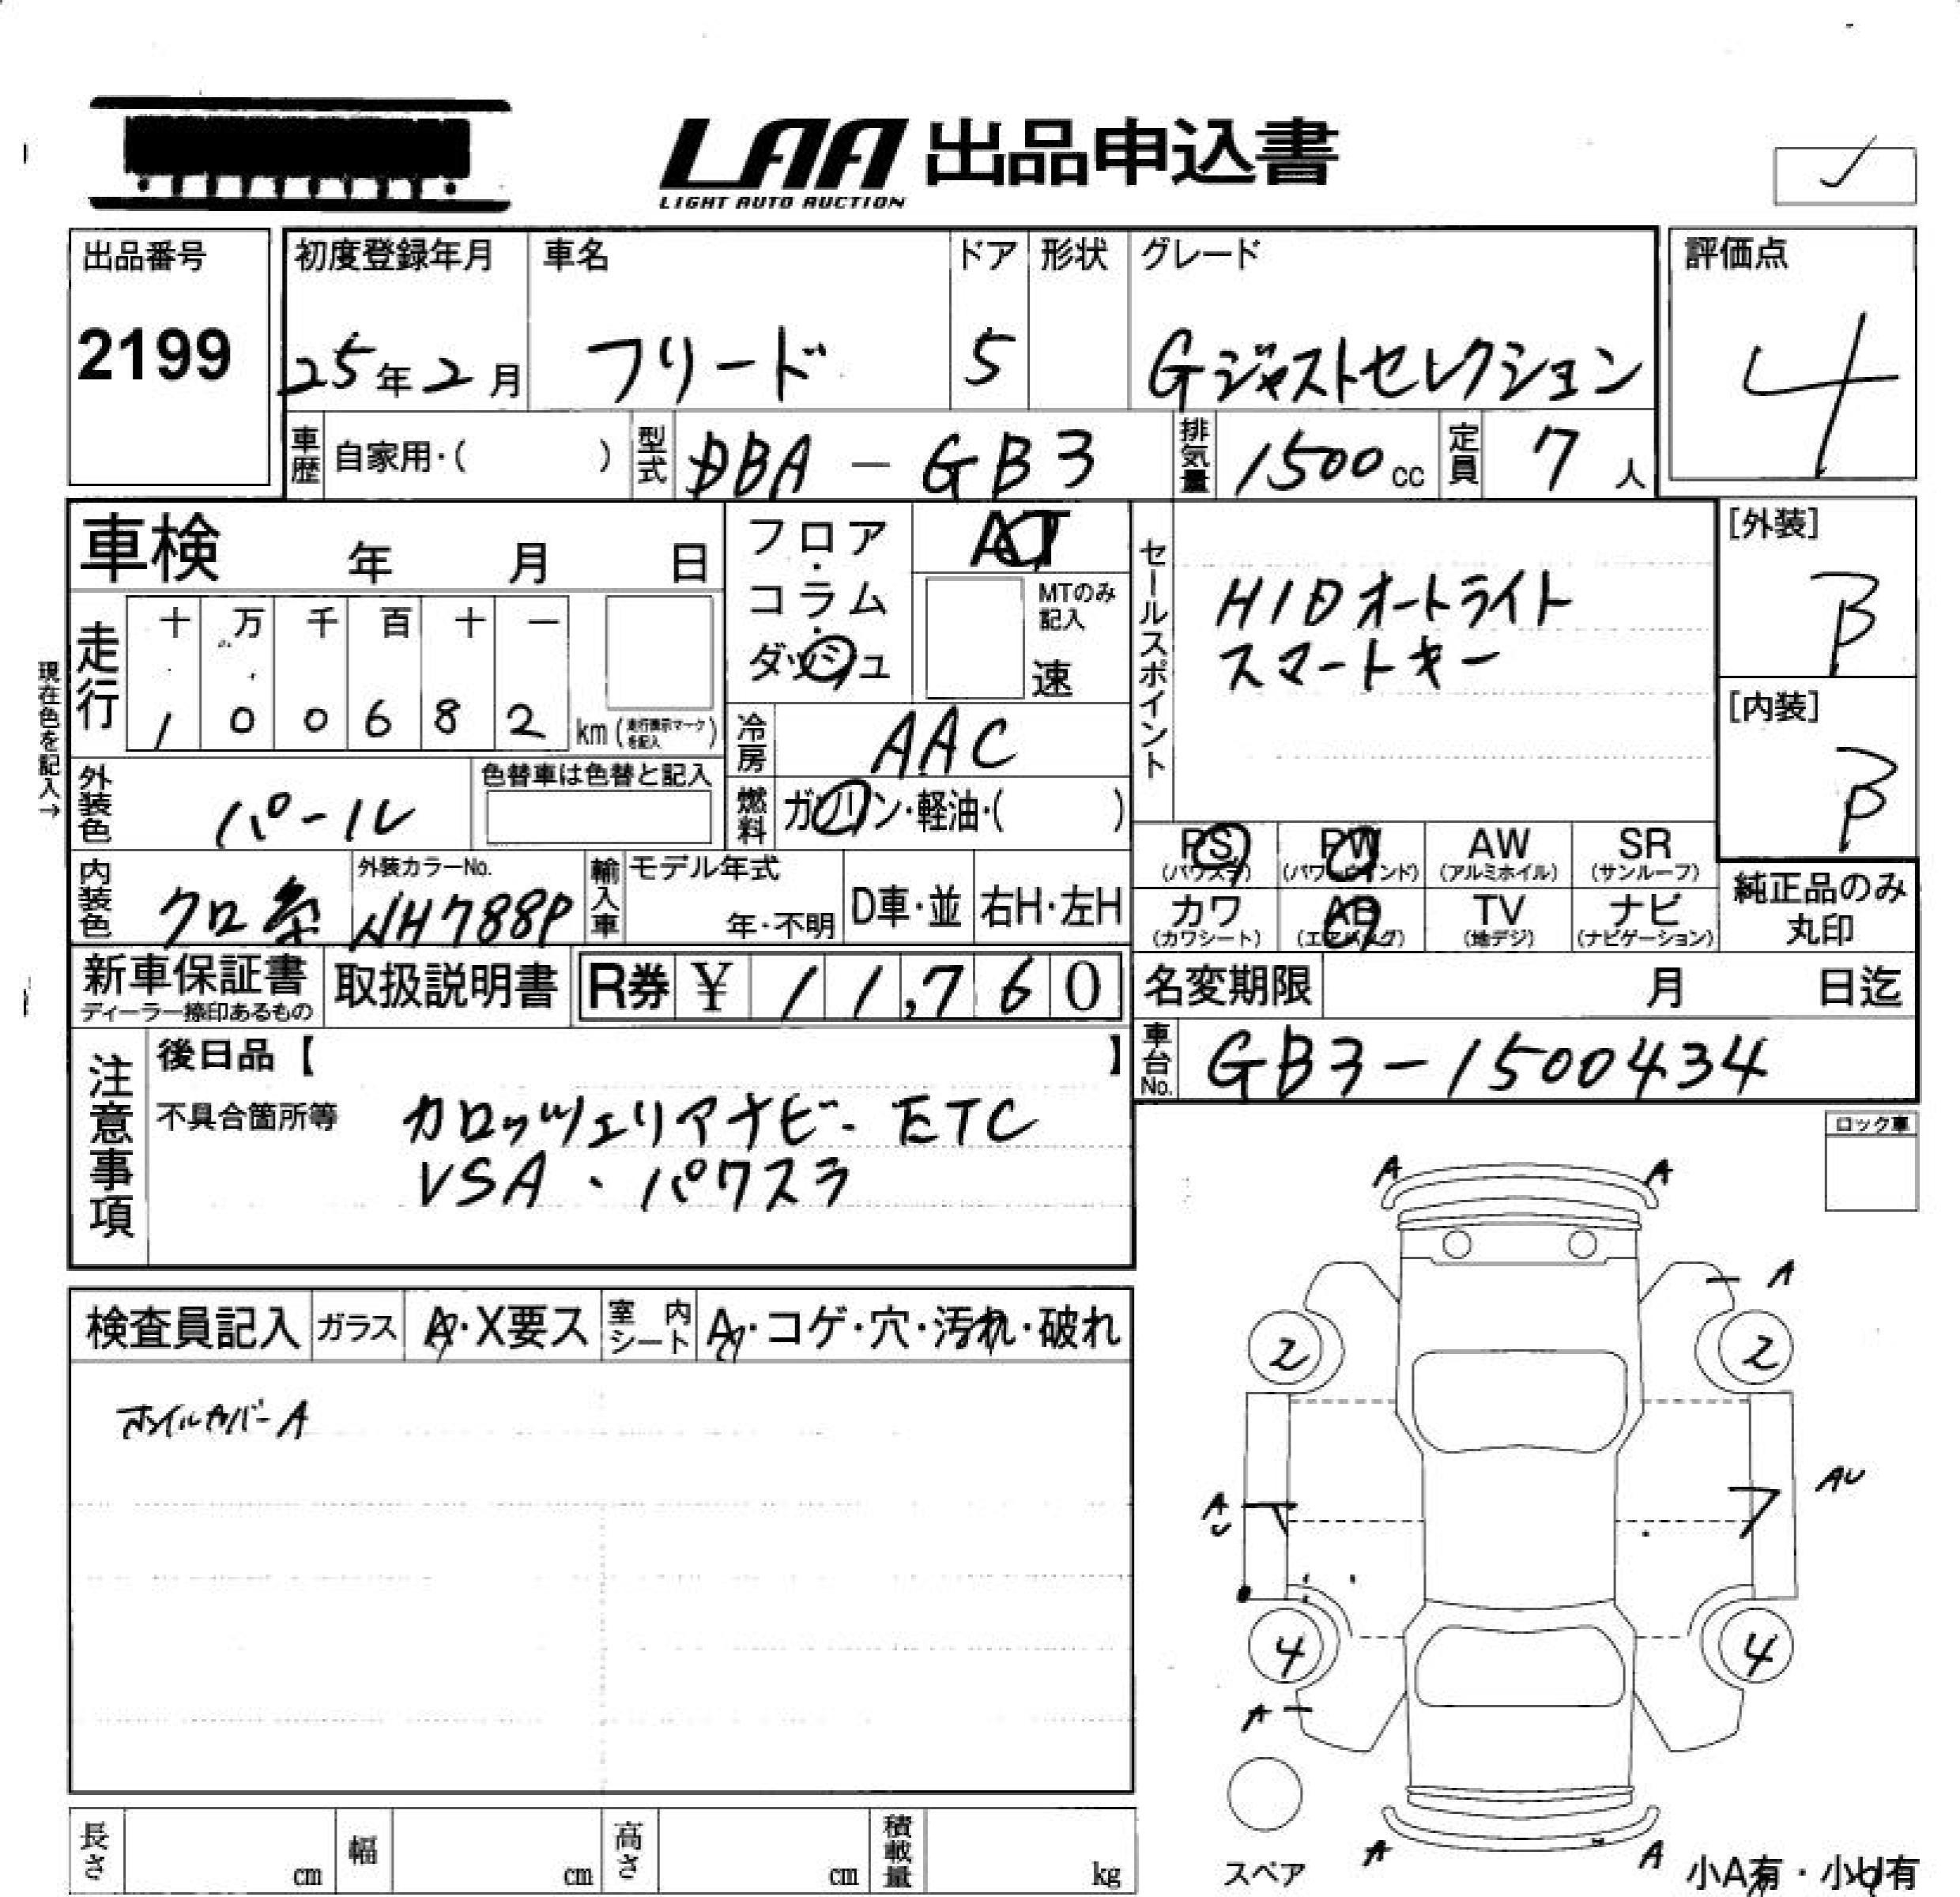 LAA 出品申込書
LIGHT AUTO AUCTION
出品番号
2199
初度登録年月
25年2月
車名
フリード
ドア
5
形状
グレード
Gジャストセレクション
評価点
4
車歴 自家用・( )
型式 DBA - GB3
排気量 1500cc
定員 7人
車検 年 月 日
フロア・コラム・ダッシュ
AT
MTのみ記入
速
セールスポイント
HIDオートライト
スマートキー
[外装]
B
[内装]
B
現在色を記入→
走行
十 万 千 百 十 一
1 0 0 6 8 2 km
冷房 AAC
外装色 パール
色替車は色替と記入
燃料 ガソリン・軽油・( )
PS PW AW SR
(パワステ) (パワーウインド) (アルミホイル) (サンルーフ)
カワ AB TV ナビ
(カワシート) (エアバッグ) (地デジ) (ナビゲーション)
純正品のみ
丸印
内装色 クロ系
外装カラーNo.
NH788P
輸入車
モデル年式
年・不明
D車・並
右H・左H
新車保証書
取扱説明書
R券 ¥ 11,760
名変期限 月 日迄
車台No. GB3-1500434
注意事項
後日品【 】
不具合箇所等 カロッツェリアナビ・ETC
VSA、パワスラ
ロック車
A A
A
2 2
AU
AU
4 4
A
A A
スペア
小A有・小U有
検査員記入 ガラス A・X要ス 室内シート A・コゲ・穴・汚れ・破れ
ホイルカバーA
長さ cm 幅 cm 高さ cm 積載量 kg